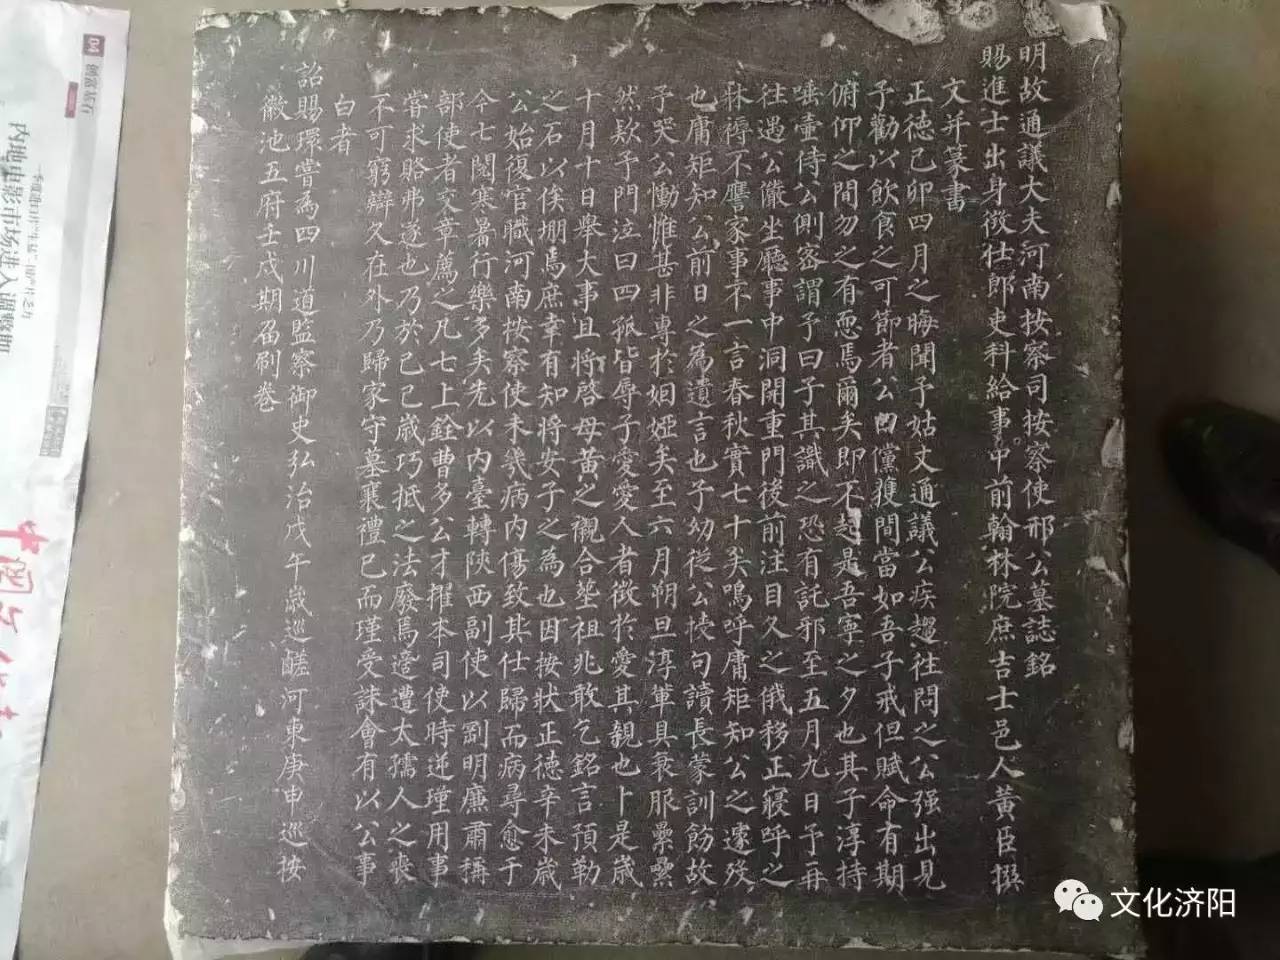 明故通議大夫河南按察司按察使邢公墓誌銘
賜進士出身徵仕郎吏科給事中前翰林院庶吉士邑人黃臣撰
文并篆書
正德己卯四月之晦聞予姑丈通議公疾趨往問之公强出見
予勸以飲食之可節者公曰儻獲間當如吾子戒但賦命有期
俯仰之間勿之有恧焉爾矣即不起是吾寧之夕也其子淳持
唾壷侍公側密謂予曰子其識之恐有託邪至五月九日予再
往遇公儼坐廳事中洞開重門後前注目久之俄移正寢呼之
牀褥不譍家事不一言春秋實七十矣嗚呼庸矩知公之遽歿
也庸矩知公前日之為遺言也予幼從公授句讀長蒙訓飭故
予哭公慟惟甚非專於姻婭矣至六月朔旦淳軰具衰服纍纍
然欵予門泣曰四孤皆辱子愛愛人者徵於愛其親也卜是歲
十月十日舉大事且將啓母黃之櫬合塟祖兆敢乞銘言預勒
之石以俟堋焉庶幸有知將安子之為也因按狀正德辛未歲
公始復官職河南按察使未幾病內傷致其仕歸而病尋愈于
今七閱寒暑行樂多矣先以內臺轉陝西副使以剴明廉肅稱
部使者交章薦之凡七上銓曹多公才擢本司使時逆瑾用事
嘗求賂弗遂也乃於己巳歲巧抵之法廢焉遼遭太孺人之喪
不可窮辯久在外乃歸家守墓襄禮已而瑾受誅會有以公事
白者
詔賜環嘗為四川道監察御史弘治戊午歲巡鹺河東庚申巡按
徽池五府壬戌期召刷卷
內地电影市场进入调整期
文化济阳